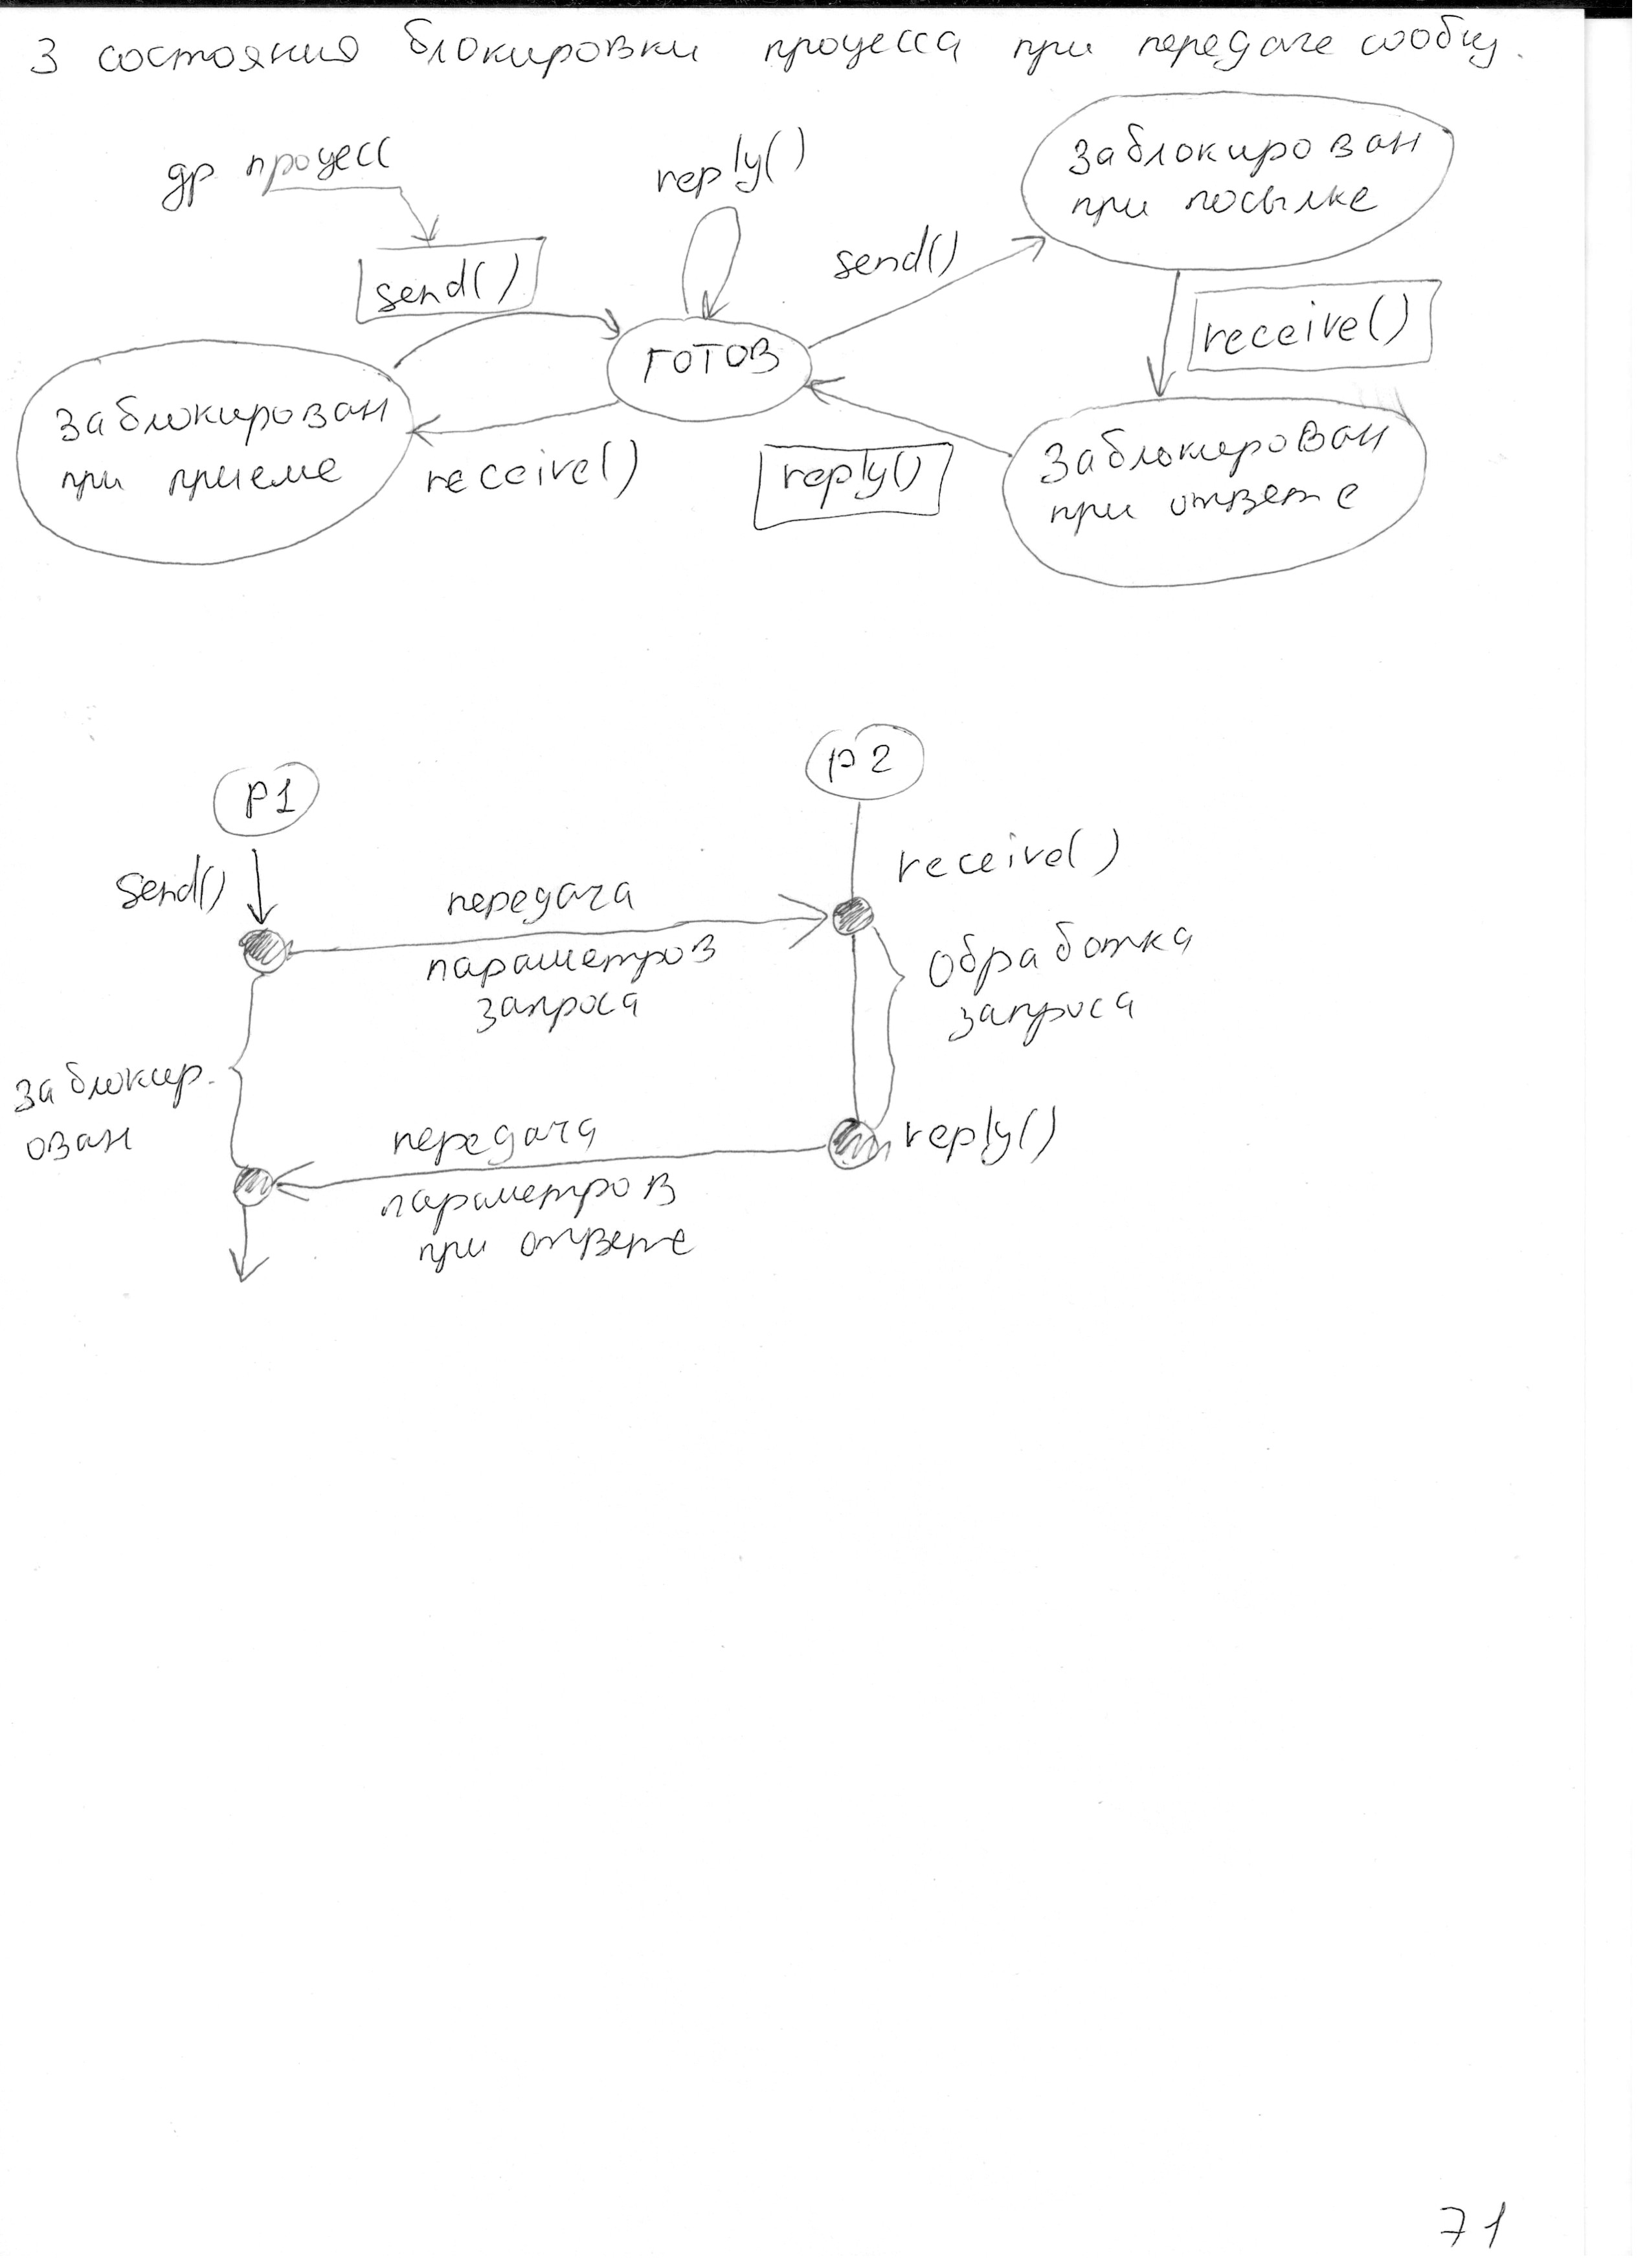 3 состояния блокировки процесса при передаче сообщ.
др процесс
reply()
заблокирован
при посылке
send()
send()
receive()
готов
заблокирован
при приеме
receive()
reply()
заблокирован
при ответе
p1
p2
send()
receive()
передача
параметров
запроса
Обработка
запроса
заблокир.
ован
передача
параметров
при ответе
reply()
71